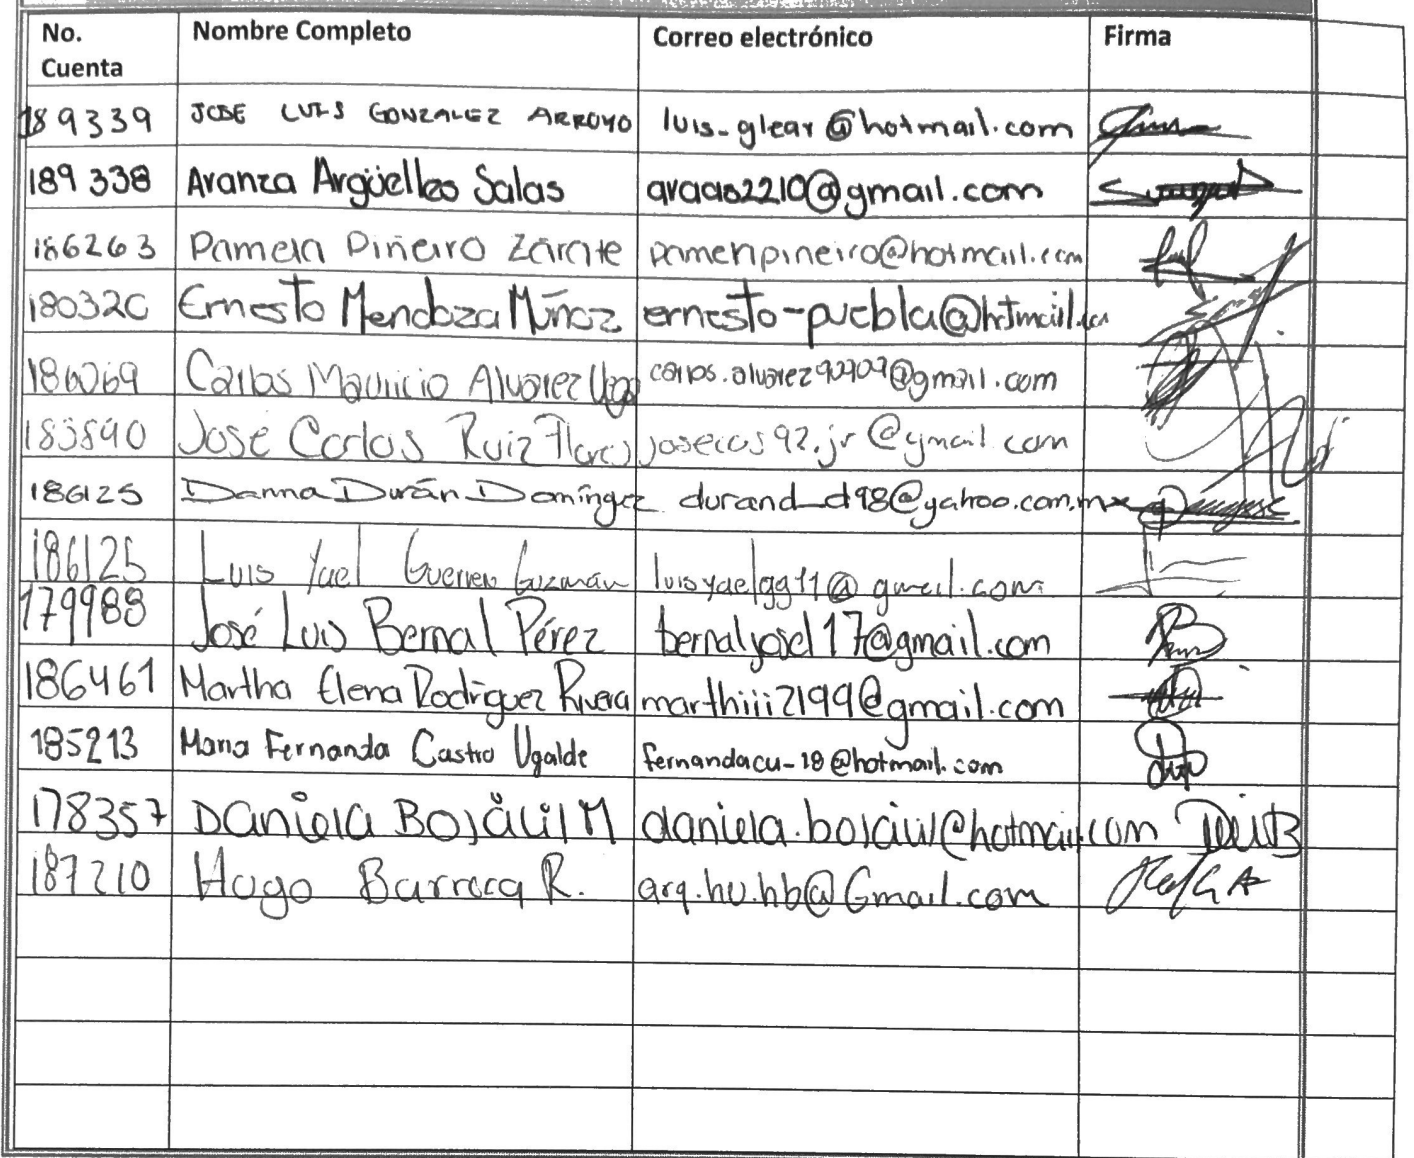 No. Cuenta Nombre Completo Correo electrónico Firma
189339 JOSE LUIS GONZALEZ ARROYO luis-glear@hotmail.com
189338 Aranza Argüelles Salas araas2210@gmail.com
186263 Pamela Piñeiro Zárate pamenpineiro@hotmail.com
180320 Ernesto Mendoza Muñoz ernesto-puebla@hotmail.com
186069 Carlos Mauricio Alvarez carlos.alvarez90909@gmail.com
183890 José Carlos Ruiz Flores josecos92.jr@gmail.com
186125 Danna Durán Domínguez durand_d98@yahoo.com.mx
186125 Luis Yael Guerrero Guzmán luisyaelgg11@gmail.com
179988 José Luis Bernal Pérez bernaljosel17@gmail.com
186461 Martha Elena Rodríguez Rivera marthiii2199@gmail.com
185213 Maria Fernanda Castro Ugalde fernandacu-18@hotmail.com
178357 Daniela Bojalil M daniela.bojalil@hotmail.com
187210 Hugo Barroca R. arq.hu.hb@Gmail.com